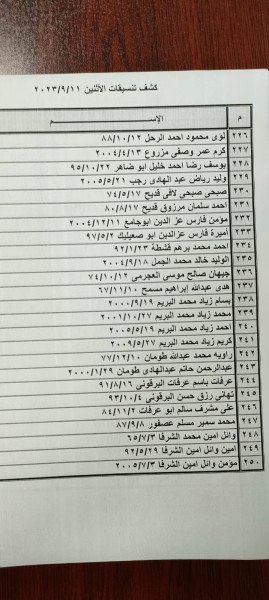 كشف تنسيقات الأثنين ٢٠٢٣/٩/١١
م الإســـم
٢٢٦ لؤى محمود احمد الرحل ٨٨/١٠/١٢
٢٢٧ كرم عمر وصفى مزروع ٢٠٠٤/٤/١٣
٢٢٨ يوسف رضا احمد خليل ابو ضاهر ٩٥/١٠/٢٢
٢٢٩ وليد رياض عبد الهادى رجب ٢٠٠٥/٥/٢١
٢٣٠ صبحى صبحى لافى قديح ٧٤/٥/١٧
٢٣١ احمد سلمان مرزوق قديح ٨٠/٨/١٧
٢٣٢ مؤمن فارس عز الدين ابوجامع ٢٠٠٤/١٢/١١
٢٣٣ أميرة فارس عزالدين ابو صعيليك ٩٧/٥/٢
٢٣٤ احمد محمد برهم قشطة ٩٢/١/٢٣
٢٣٥ الوليد خالد محمد الجمل ٢٠٠٤/٩/١٨
٢٣٦ جيهان صالح موسى العجرمى ٧٤/١٠/١٢
٢٣٧ هدى عبدالله إبراهيم مسمح ٦٧/١١/١٠
٢٣٨ بسام زياد محمد البريم ٢٠٠٠/٩/١٩
٢٣٩ محمد زياد محمد البريم ٢٠٠١/١٠/٢٧
٢٤٠ احمد زياد محمد البريم ٢٠٠٥/٥/١٩
٢٤١ كريم زياد محمد البريم ٢٠٠٩/٥/٢٧
٢٤٢ راويه محمد عبدالله طومان ٧٧/١٢/١٠
٢٤٣ عبدالرحمن حاتم عبدالهادى طومان ٢٠٠٠/١/٢٩
٢٤٤ عرفات باسم عرفات البرقونى ٩١/٨/١٦
٢٤٥ تهانى رزق حسن البرقونى ٩٣/١٠/٤
٢٤٦ على مشرف سالم ابو عرفات ٨٤/١١/٢
٢٤٧ محمد سمير مسلم عصفور ٨٧/٩/٨
٢٤٨ وائل امين محمد الشرفا ٦٥/٧/٣
٢٤٩ امين وائل امين الشرفا ٩٢/٥/٢٩
٢٥٠ مؤمن وائل امين الشرفا ٢٠٠٥/٧/٣